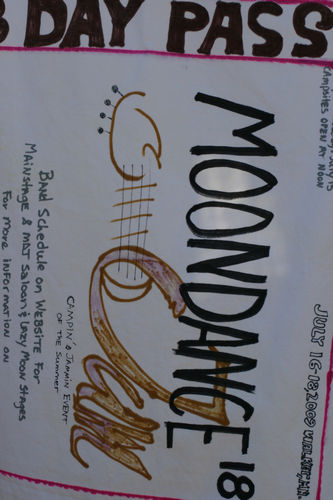 3 DAY PASS
CAMPSITES OPEN AT NOON
JULY 16-18, 2009
MOONDANCE 18
Jam
CAMPIN' & JAMMIN EVENT
OF THE SUMMER
BAND SCHEDULE ON WEBSITE FOR
MAINSTAGE & MJJ SALOON & LAZY MOON STAGES
FOR MORE INFORMATION ON